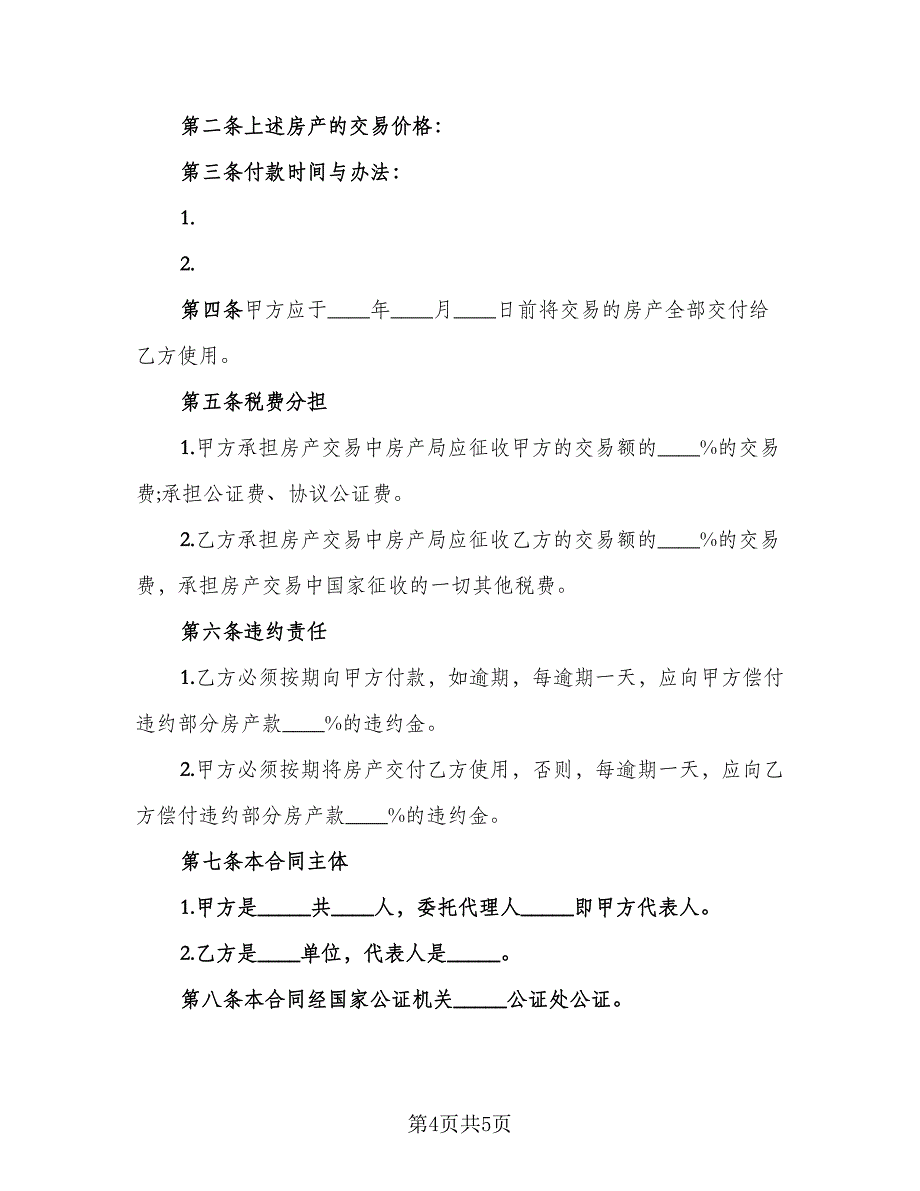 第二条上述房产的交易价格：
第三条付款时间与办法：
1.
2.
第四条甲方应于____年____月____日前将交易的房产全部交付给
乙方使用。
第五条税费分担
1.甲方承担房产交易中房产局应征收甲方的交易额的____%的交易
费;承担公证费、协议公证费。
2.乙方承担房产交易中房产局应征收乙方的交易额的____%的交易
费，承担房产交易中国家征收的一切其他税费。
第六条违约责任
1.乙方必须按期向甲方付款，如逾期，每逾期一天，应向甲方偿付
违约部分房产款____%的违约金。
2.甲方必须按期将房产交付乙方使用，否则，每逾期一天，应向乙
方偿付违约部分房产款____%的违约金。
第七条本合同主体
1.甲方是_____共____人，委托代理人_____即甲方代表人。
2.乙方是____单位，代表人是_____。
第八条本合同经国家公证机关_____公证处公证。
第4页共5页